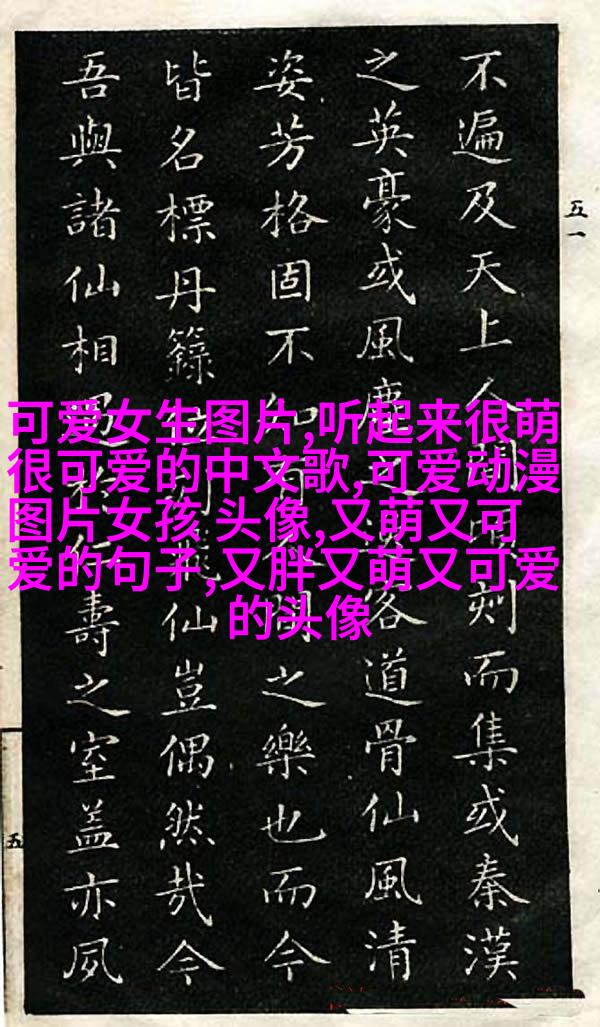 可爱女生图片,听起来很萌
很可爱的中文歌,可爱动漫
图片女孩 头像,又萌又可
爱的句子,又胖又萌又可爱
的头像
五一
不遍及天上人間刻而集或秦漢
之英豪或風塵之客道骨仙風清
姿芳格固不知有間之樂也而今
皆名標丹籙列仙豈偶然哉今
吾與諸仙相遇於壽之室蓋亦夙
五